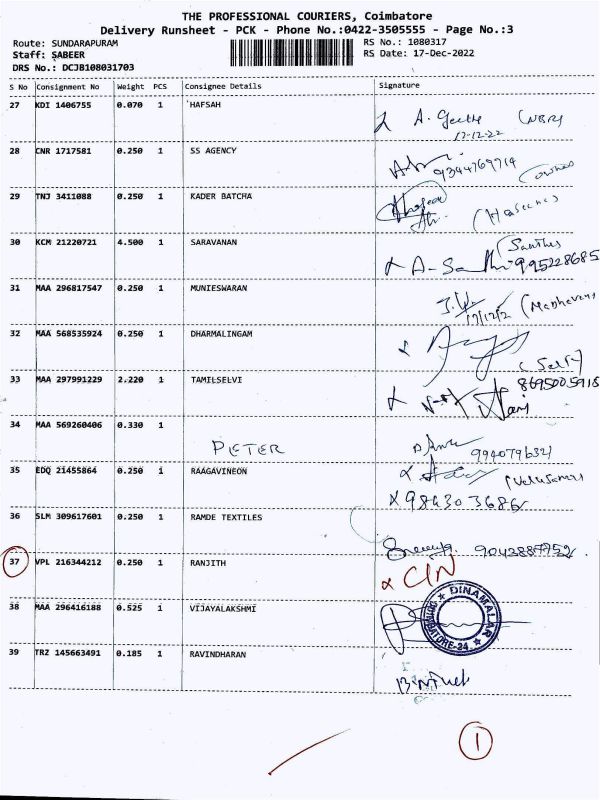 THE PROFESSIONAL COURIERS, Coimbatore
Delivery Runsheet - PCK - Phone No.:0422-3505555 - Page No.:3
Route: SUNDARAPURAM RS No.: 1080317
Staff: SABEER RS Date: 17-Dec-2022
DRS No.: DCJB108031703
S No Consignment No Weight PCS Consignee Details Signature
27 KDI 1406755 0.070 1 HAFSAH
A. Geetha
17-12-22
28 CNR 1717581 0.250 1 SS AGENCY
9344769714
29 TNJ 3411088 0.250 1 KADER BATCHA
30 KCM 21220721 4.500 1 SARAVANAN
995228685
31 MAA 296817547 0.250 1 MUNIESWARAN
17/12/2
32 MAA 568535924 0.250 1 DHARMALINGAM
(Self)
33 MAA 297991229 2.220 1 TAMILSELVI 8695005918
34 MAA 569260406 0.330 1
PETER
35 EDQ 21455864 0.250 1 RAAGAVINEON
36 SLM 309617601 0.250 1 RAMDE TEXTILES
37 VPL 216344212 0.250 1 RANJITH
CIN
38 MAA 296416188 0.525 1 VIJAYALAKSHMI
DINAMALAR
39 TRZ 145663491 0.185 1 RAVINDHARAN
1